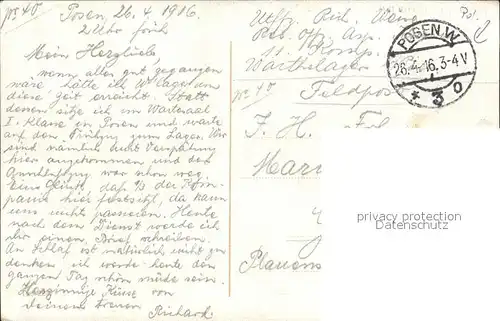 No 40 Posen, 26.4.1916
2 Uhr früh
Mein Herzlieb,
wenn alles gut gegangen
wäre, hätte ich d. Lager um
diese Zeit erreicht. Statt
dessen sitze ich im Wartesaal
I. Klasse in Posen und warte
auf den Frühzug zum Lager. Wir
sind nämlich mit Verspätung
hier angekommen und der
Anschlußzug war schon weg.
Ein Glück, daß 1/3 der Kom-
panie hier festsitzt, da kann
uns nichts passieren. Heute
nach dem Dienst werde ich
dir einen Brief schreiben.
An Schlaf ist natürlich nicht zu
denken, ich werde heute den
ganzen Tag schön müde sein.
Herzinnige Küsse von
deinem treuen
Richard.
Uffz. Rich.
Res. Off. Asp.
11. Komp.
Warthelager
Feldpost
POSEN. W.
26.4.16.3-4V
* 3 o
F. H.
Mar
Plauen
privacy protection
Datenschutz